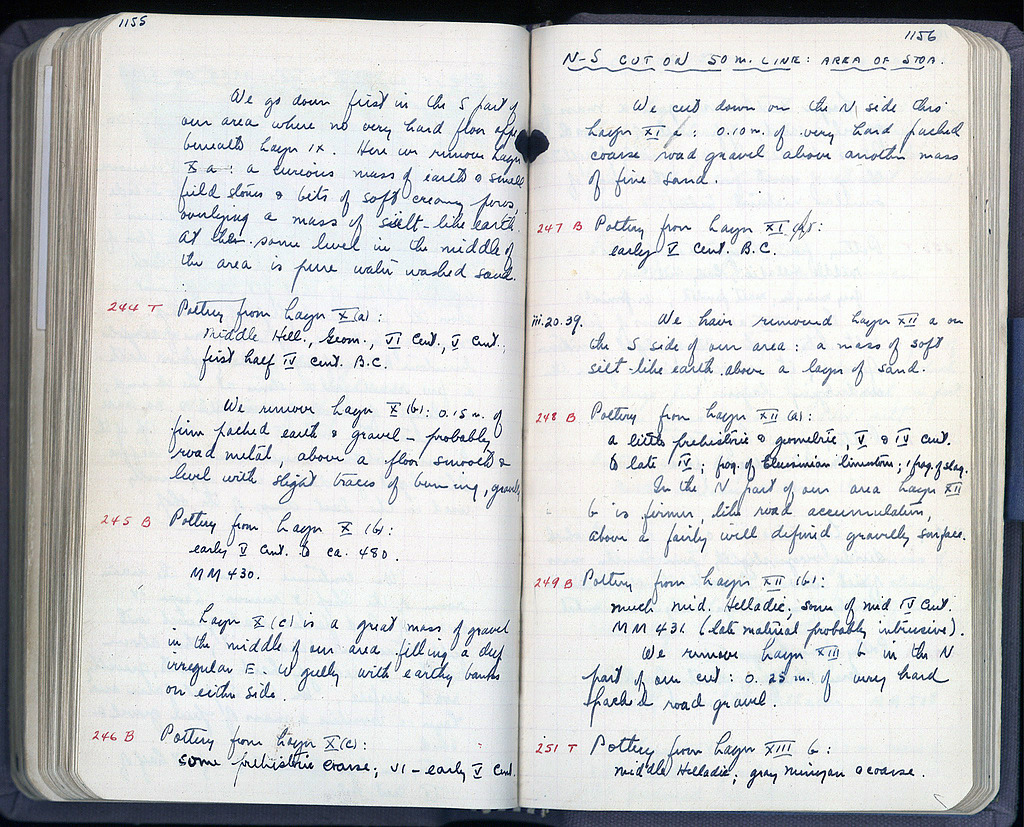 1155
We go down first in the S part of
our area where no very hard floor
beneath Layer IX. Here we remove Layer
X a: a curious mass of earth & small
field stones & bits of soft creamy poros,
overlying a mass of silt-like earth.
At the same level in the middle of
the area is pure water washed sand.
244 T Pottery from Layer X (a):
Middle Hell., Geom., VI cent., V cent.,
first half IV cent. B.C.
We remove Layer X (b): 0.15 m. of
firm packed earth & gravel – probably
road metal, above a floor smooth &
level with slight traces of burning,
245 B Pottery from Layer X (b):
early V cent. to ca. 480.
MM 430.
Layer X (c) is a great mass of gravel
in the middle of our area filling a deep
irregular E-W gully with earthy banks
on either side.
246 B Pottery from Layer X (c):
some prehistoric coarse; VI – early V cent.
1156
N-S CUT ON 50 M. LINE: AREA OF STOA.
We cut down on the N side thro
Layer XI : 0.10 m. of very hard packed
coarse road gravel above another mass
of fine sand.
247 B Pottery from Layer XI :
early V cent. B.C.
iii.20.39. We have removed Layer XII a on
the S side of our area: a mass of soft
silt-like earth above a layer of sand.
248 B Pottery from Layer XII (a):
a little prehistoric & geometric, V & IV cent.
to late IV; frag. of Eleusinian limestone; 1 frag. of slag.
In the N part of our area Layer XII
b is firmer, like road accumulation,
above a fairly well defined gravelly surface.
249 B Pottery from Layer XII (b):
much mid. Helladic; some of mid IV cent.
MM 431. (late material probably intrusive).
We remove Layer XIII b in the N
part of our cut: 0.25 m. of very hard
packed road gravel.
251 T Pottery from Layer XIII b:
middle Helladic; gray minyan & coarse.